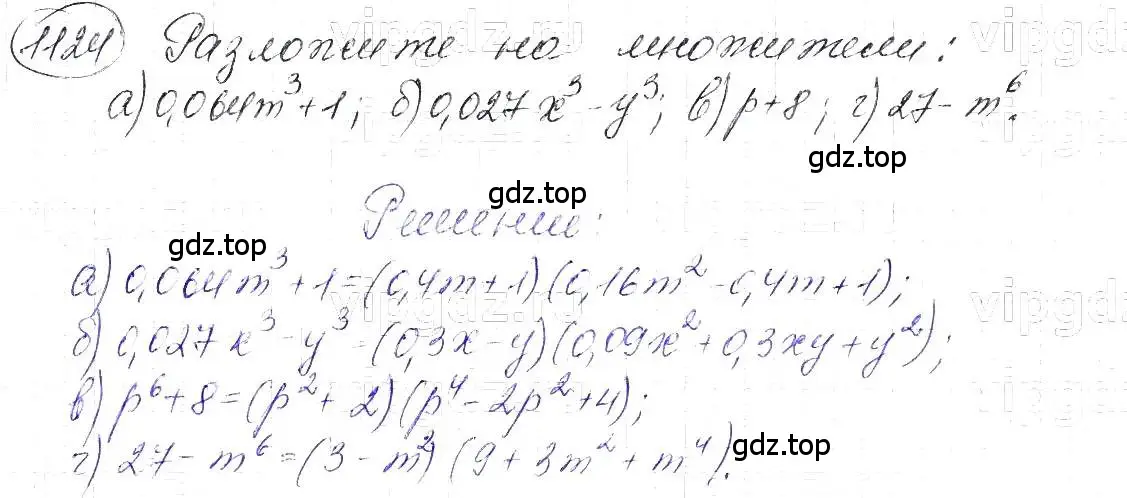 1124 Разложите на множители:
а) 0,064m³+1; б) 0,027x³-y³; в) p+8; г) 27-m⁶.
gdz.top
gdz.top
Решение:
gdz.top
а) 0,064m³+1=(0,4m+1)(0,16m²-0,4m+1);
б) 0,027x³-y³=(0,3x-y)(0,09x²+0,3xy+y²);
в) p⁶+8=(p²+2)(p⁴-2p²+4);
г) 27-m⁶=(3-m²)(9+3m²+m⁴).
gdz.top